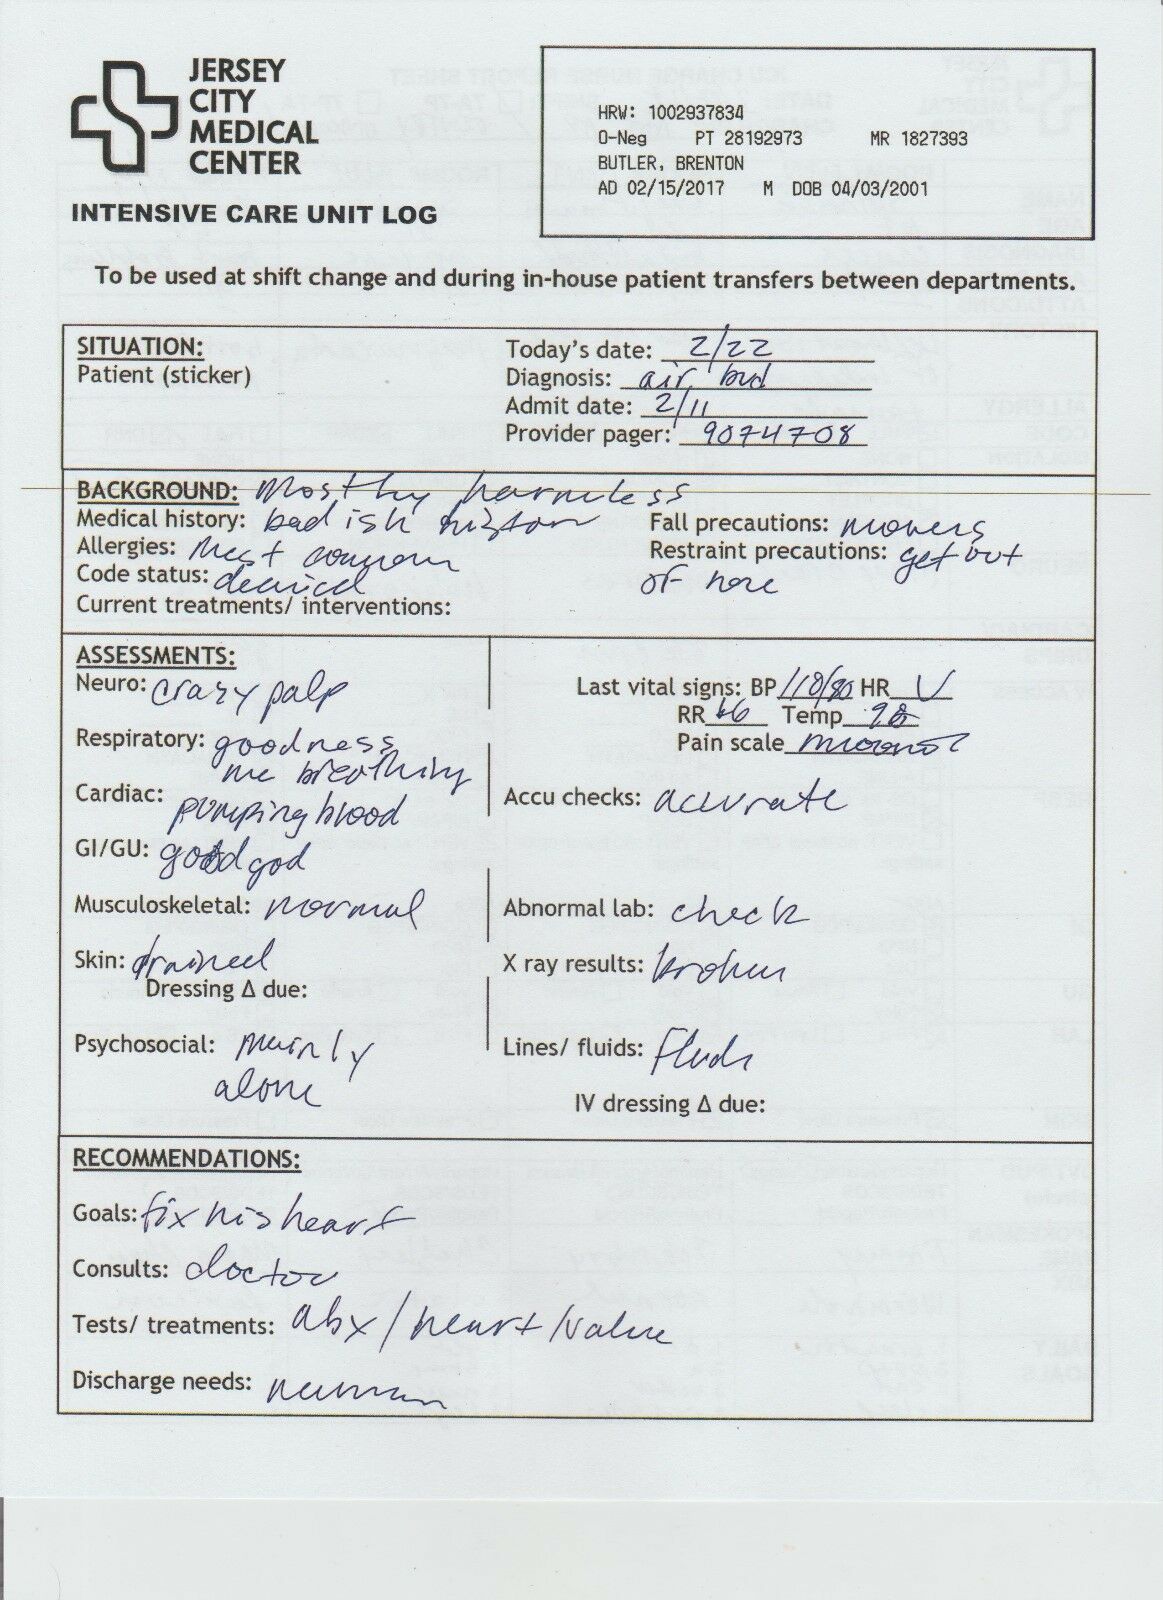 JERSEY
CITY
MEDICAL
CENTER
INTENSIVE CARE UNIT LOG
HRW: 1002937834
O-Neg PT 28192973 MR 1827393
BUTLER, BRENTON
AD 02/15/2017 M DOB 04/03/2001
To be used at shift change and during in-house patient transfers between departments.
SITUATION:
Patient (sticker)
Today's date: 2/22
Diagnosis: air bud
Admit date: 2/11
Provider pager: 9074708
BACKGROUND: Mostly harmless
Medical history: bad ish
Fall precautions: movers
Allergies: Most common
Restraint precautions: get out
of here
Code status: denied
Current treatments/ interventions:
ASSESSMENTS:
Neuro: crazy palp
Last vital signs: BP 110/80 HR
RR 16 Temp 98
Respiratory: goodness
me breathing
Pain scale
Cardiac: pumping blood
Accu checks: accurate
GI/GU: good god
Musculoskeletal: normal
Abnormal lab: check
Skin: drained
X ray results: broken
Dressing Δ due:
Psychosocial: mainly
alone
Lines/ fluids: Fluids
IV dressing Δ due:
RECOMMENDATIONS:
Goals: fix his heart
Consults: doctor
Tests/ treatments: abx/heart/valve
Discharge needs: